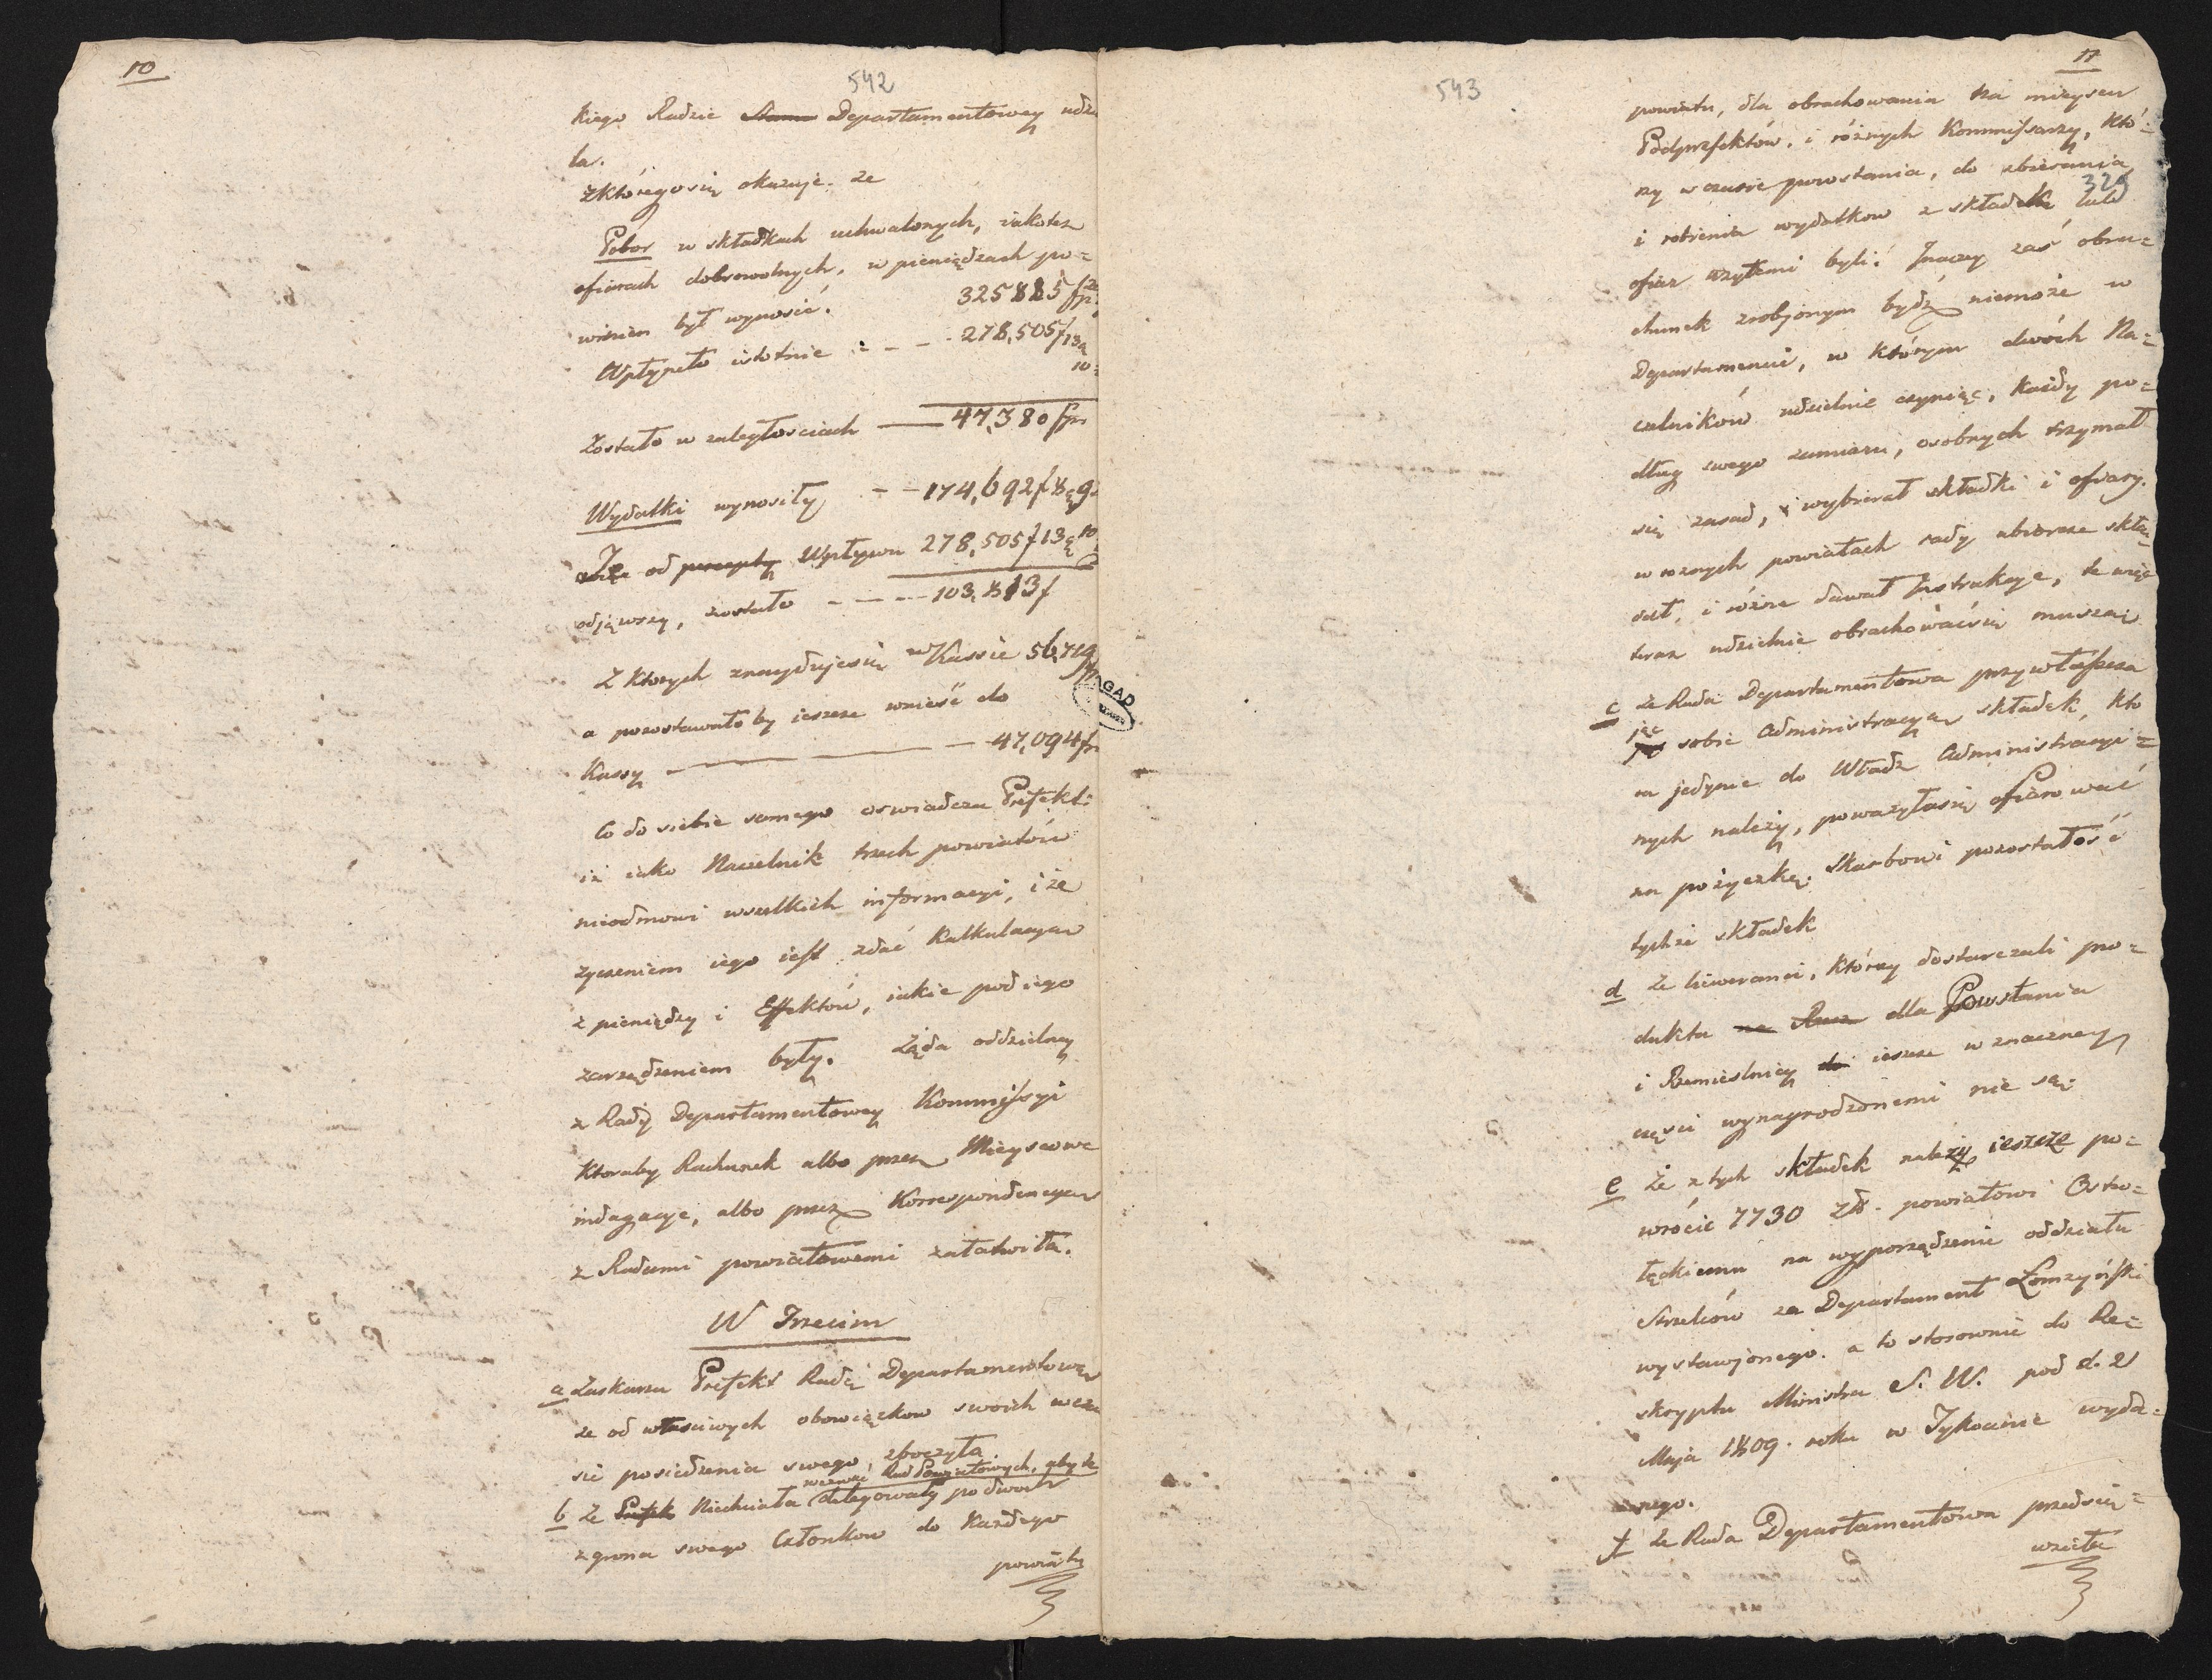 10
542
kiego Radzie Departamentowey udzie
la.
z którego się okazuje. że
Pobor w składkach uchwalonych, iakotez
ofiarach dobrowolnych, w pieniądzach po=
winien był wynosić. 325885 f
Wpłynęło istotnie - - - 278,505 f 13 g
10
Zostało w zaległosciach — 47,380 f
Wydatki wynosiły - - 174,692 f 8 g
Te od percepty Wpływu 278,505 f 13 g 10
odjąwszy, zostało - - - - 103,813 f
Z ktorych znayduje się w Kassie 56,719
a pozostawało by ieszcze wnieść do
Kassy — 47,094 f
Co do siebie samego oswiadcza Prefekt:
iż iako Naczelnik trzech powiatów
nieodmowi wszelkich informacyi, i że
zyczeniem iego iest zdać Kalkulacyą
z pieniędzy i Effektów, iakie pod iego
zarządzeniem były. Ząda oddzielney
z Rady Departamentowey Kommissyi
Ktoraby Rachunek albo przez Mieyscowe
indagacye, albo przez Korrespondencyą
z Radami powiatowemi załatwiła.
W Trzecim
a Zaskarza Prefekt Radę Departamentową
że od właściwych obowiązkow swoich w cza
sie posiedzenia swego, zboczyła
Rad Powiatowych, aby te
b Ze Prefek Niechciała delegowały po dwóch
z grona swego Członkow do Każdego
powiatu
11
543
powiatu, dla obrachowania na mieyscu
Podprefektów, i róznych Kommissarzy, któ=
rzy w czasie powstania, do zbierania
329
i robienia wydatkow z składek lub
ofiar użytemi byli. Inaczey zaś obra=
chunek zrobjonym bydź niemoże w
Departamencie, w którym dwóch Na=
czelników udzielnie czyniąc, każdy po=
dług swego zamiaru, osobnych trzymał
się zasad, i wybierał składki i ofiary.
w roznych powiatach rady ubiorcze skła=
dał, i różne dawał Instrukcye, te więc
teraz udzielnie obrachować się muszą
c że Rada Departamentowa przywłaszcza
jąc
sobie Administracyą składek, któ
ra jedynie do Władz Administracyi=
nych należy, poważyła się ofiarować
na pożyczkę Skarbowi pozostałość
tychże składek
d Ze liweranci, którzy dostarczali pro=
dukta na dla Powstania
i Rzemieslnicy do ieszcze w znaczney
części wynagrodzonemi nie są
e Że z tych składek należy ieszcze po=
wrócić 7730 zł. powiatowi Ostro=
łęckiemu na wyporządzenie oddziału
Strzelców za Departament Łomzyński
wystawjonego. a to stosownie do Re=
skryptu Ministra S. W. pod d. 2
Maja 1809. roku w Tykocinie wyda=
nego.
f że Rada Departamentowa przedsię=
wzięła